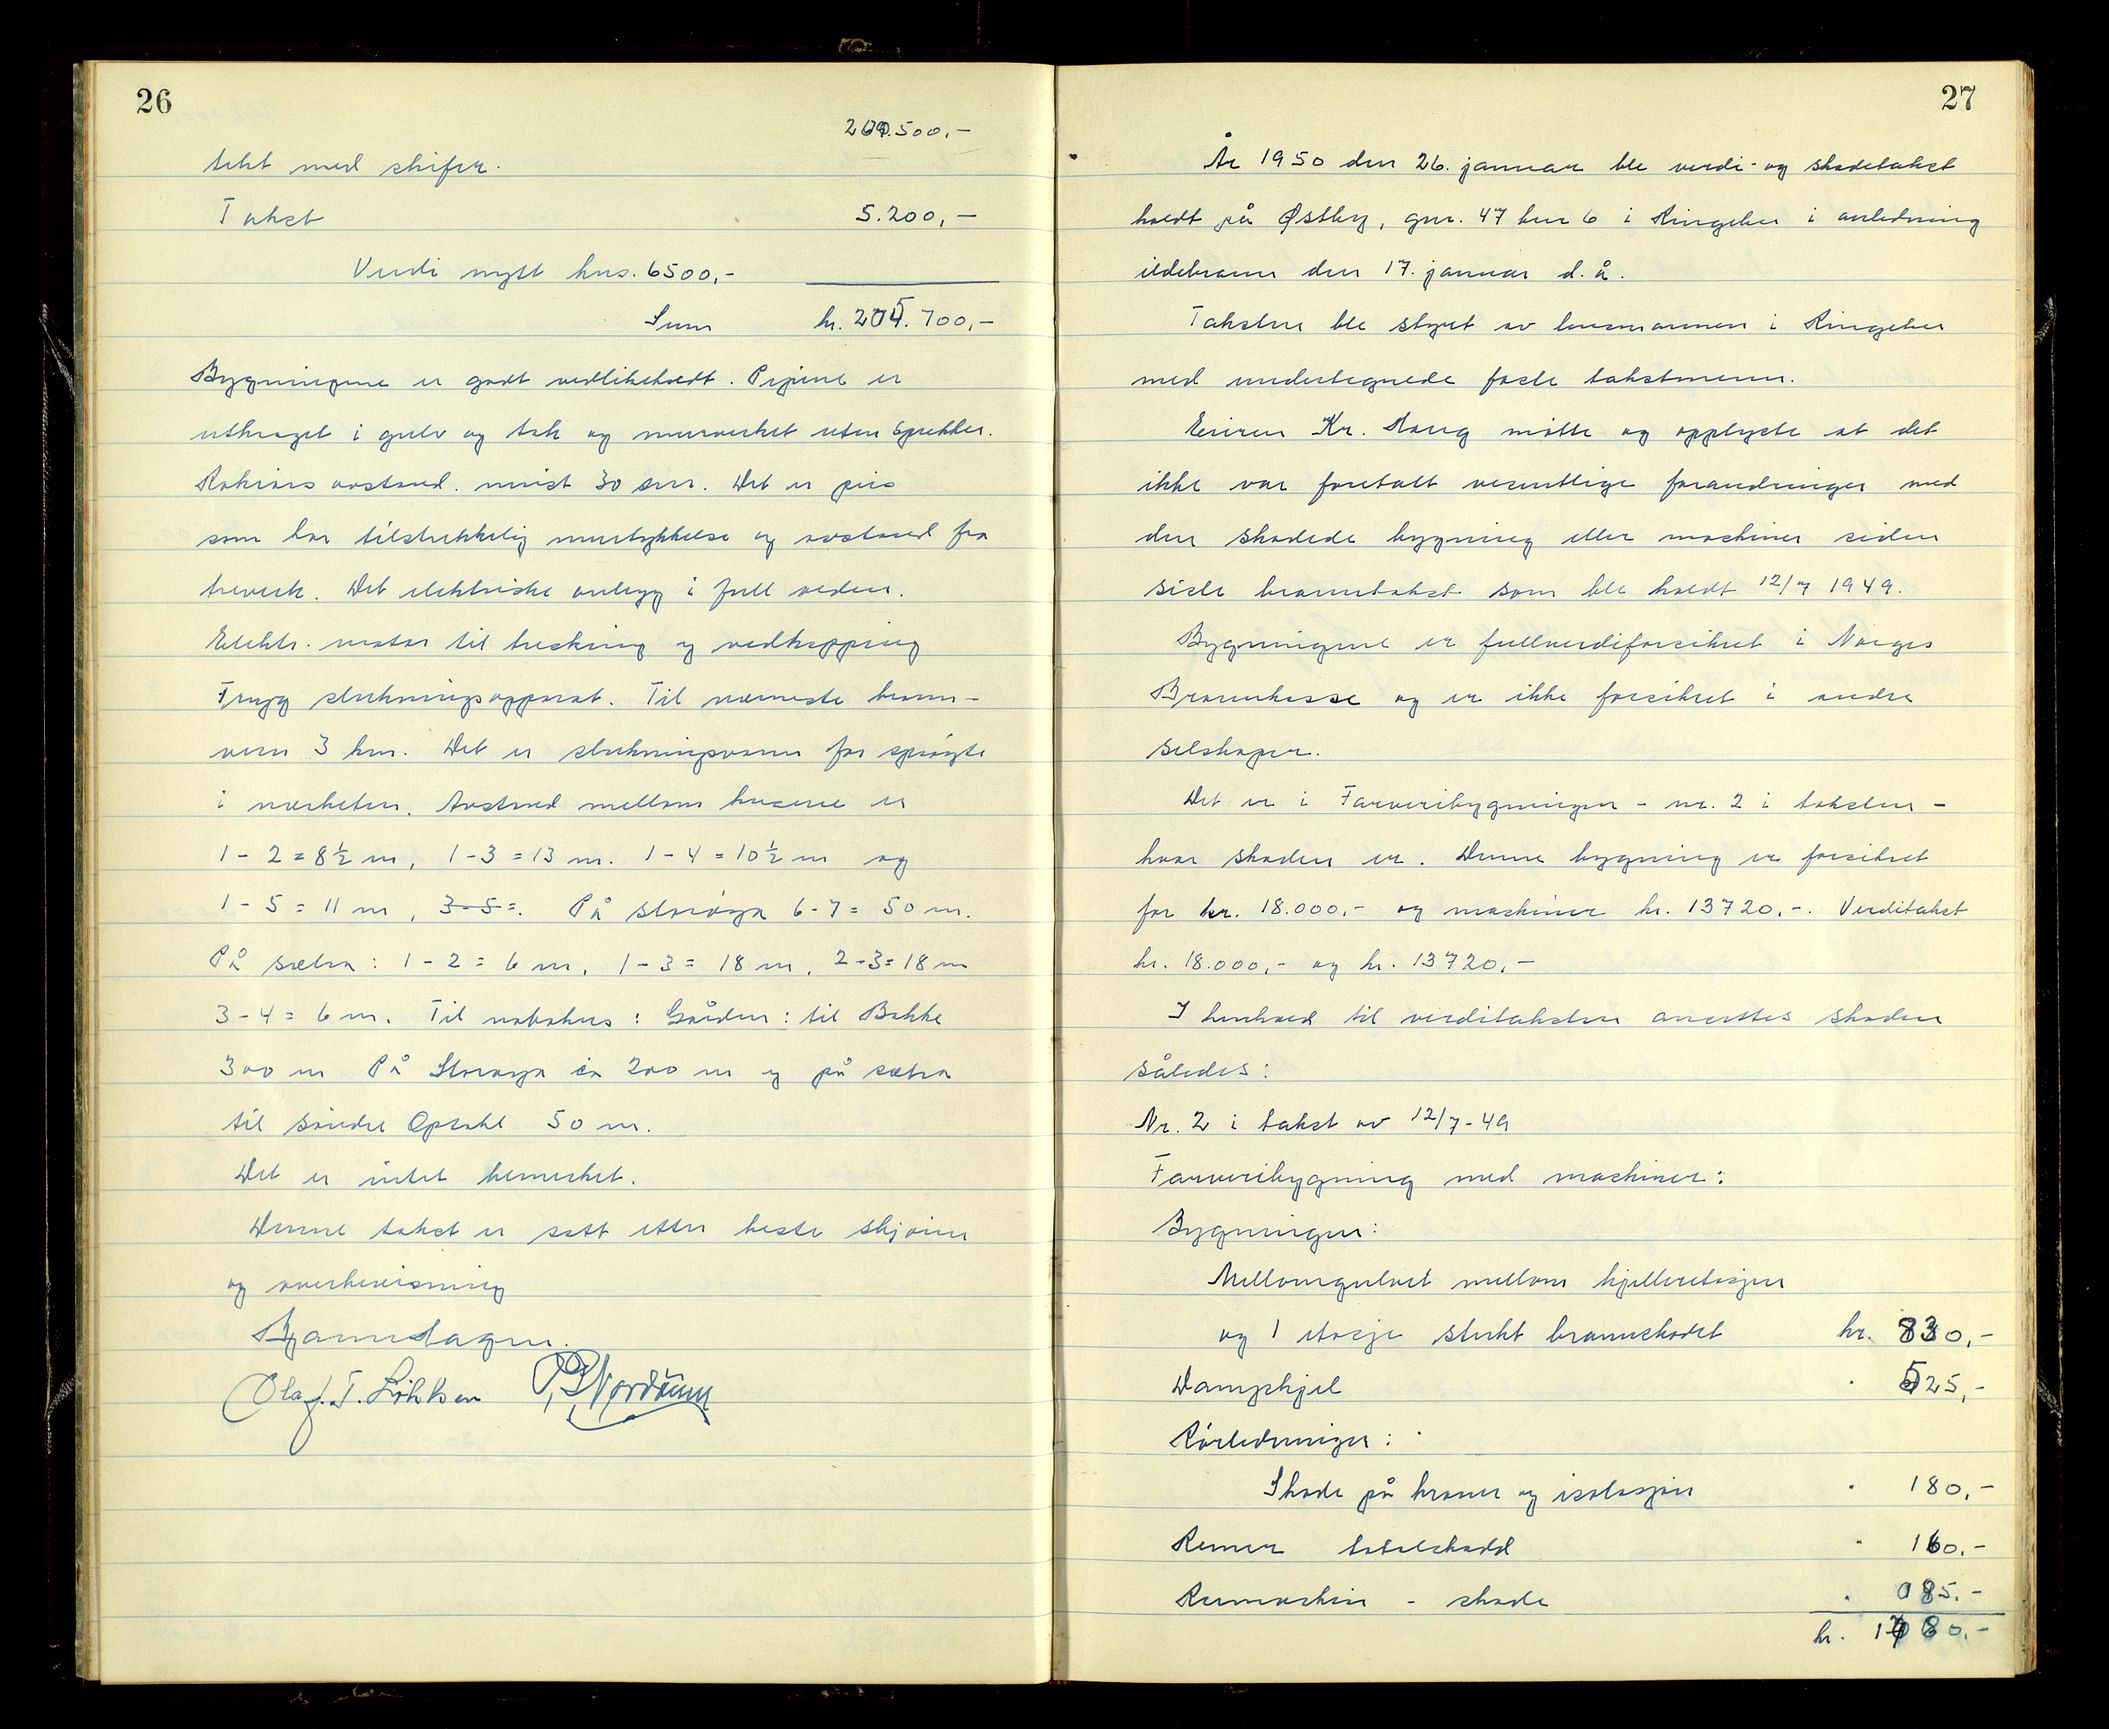 26
200.500,-
tekt med skifer.
Takst 5.200,-
Verdi nytt hus. 6500,-
Sum kr. 205.700,-
Bygningene er godt vedlikeholdt. Pipene er
utkraget i gulv og tak og murverket uten sprekker.
Rökrörs avstand. minst 30 cm. Det er peis
som har tilstrekkelig murtykkelse og avstand fra
treverk. Det elektriske anlegg i full orden.
Elektr. motor til tresking og vedkapping
Trygg slukningsapparat. Til nærmeste brann-
vern 3 km. Det er slukningsvann for spröyte
i nærheten. Avstand mellom husene er
1 - 2 = 8½ m, 1-3 = 13 m. 1-4 = 10½ m og
1 - 5 = 11 m, 3-5=. På Storöya 6-7= 50 m.
På sætra: 1-2 = 6 m, 1-3 = 18 m, 2-3=18 m
3-4= 6 m. Til nabohus: Gården: til Bakke
300 m På Storöya ca 200 m og på sætra
til söndre Opsahl 50 m.
Det er intet bemerket.
Denne takst er satt etter beste skjönn
og overbevisning
Olaf. T. Lökken P. Nordrum
27
År 1950 den 26. januar ble verdi- og skadetakst
holdt på Østby, gnr. 47 bnr 6 i Ringebu i anledning
ildebrann den 17. januar d. å.
Taksten ble styret av lensmannen i Ringebu
med undertegnede faste takstmenn.
Eieren Kr. Haug mötte og opplyste at det
ikke var foretatt vesentlige forandringer med
den skadede bygning eller maskiner siden
siste branntakst som ble holdt 12/7 1949.
Bygningene er fullverdiforsikret i Norges
Brannkasse og er ikke forsikret i andre
selskaper.
Det er i Farveribygningen - nr. 2 i taksten -
hvor skaden er. Denne bygning er forsikret
for kr. 18.000,- og maskiner kr. 13720,-. Verditakst
kr. 18.000,- og kr. 13720,-
I henhold til verditaksten ansettes skaden
således:
Nr. 2 i takst av 12/7-49
Farveribygning med maskiner:
Bygningen:
Mellomgulvet mellom kjelleretasjen
og 1 etasje sterkt brannskadet kr. 830,-
Dampkjel " 525,-
Rörledninger:
Skade på kraner og isolasjon " 180,-
Remer totalskadd " 160.-
Rumaskin - skade " 85.-
kr. 1780.-